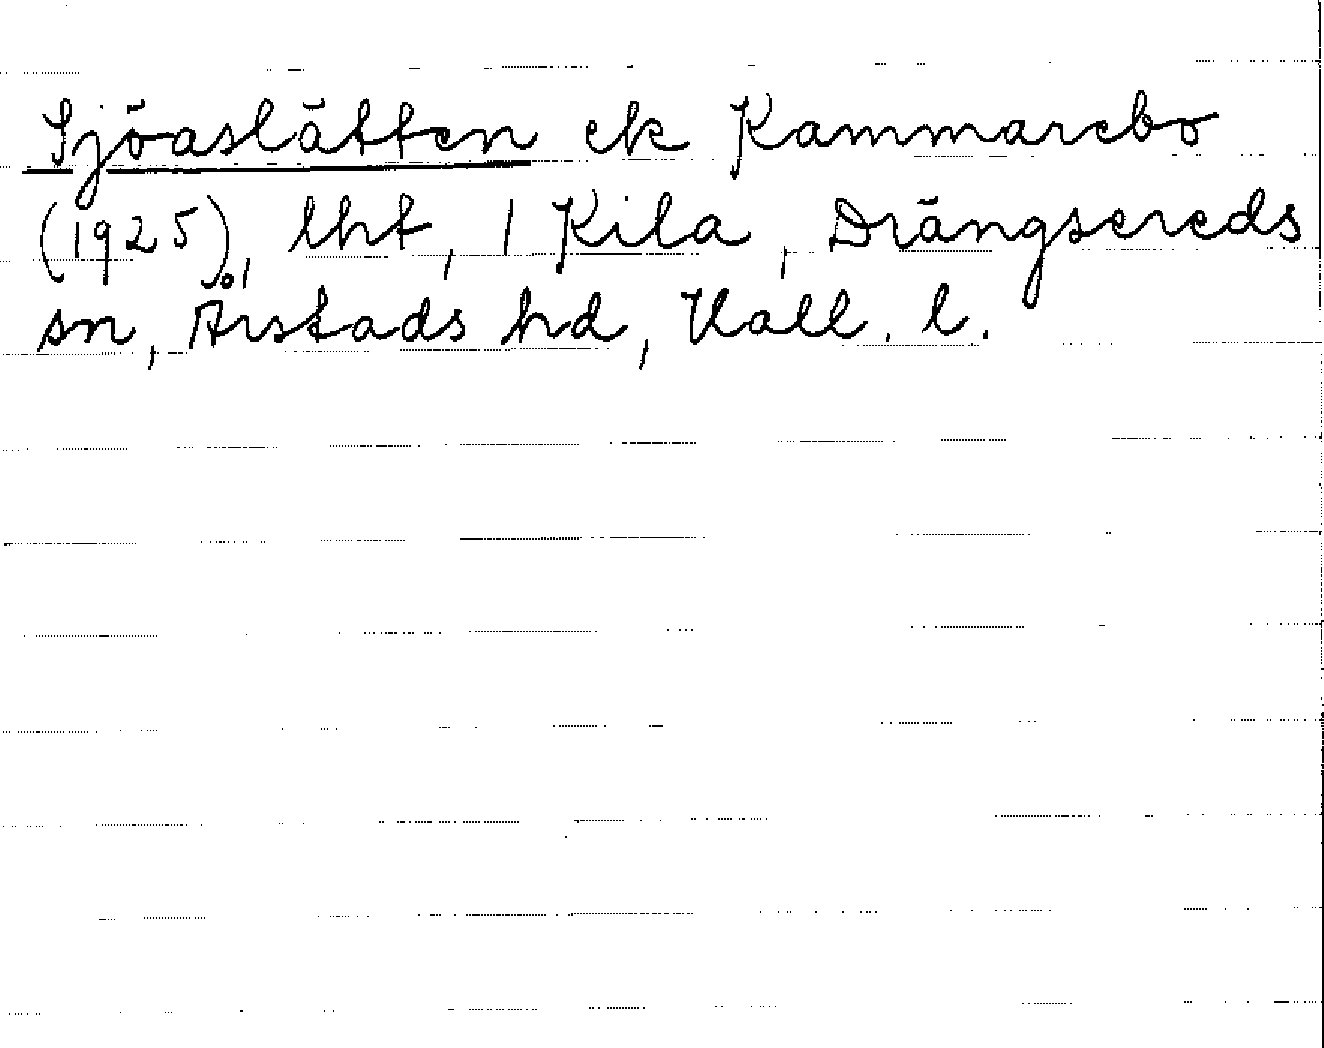 Sjöaslätten ek Kammarebo
(1925), lht, 1 Kila, Drängsereds
sn, Årstads hd, Hall. l.